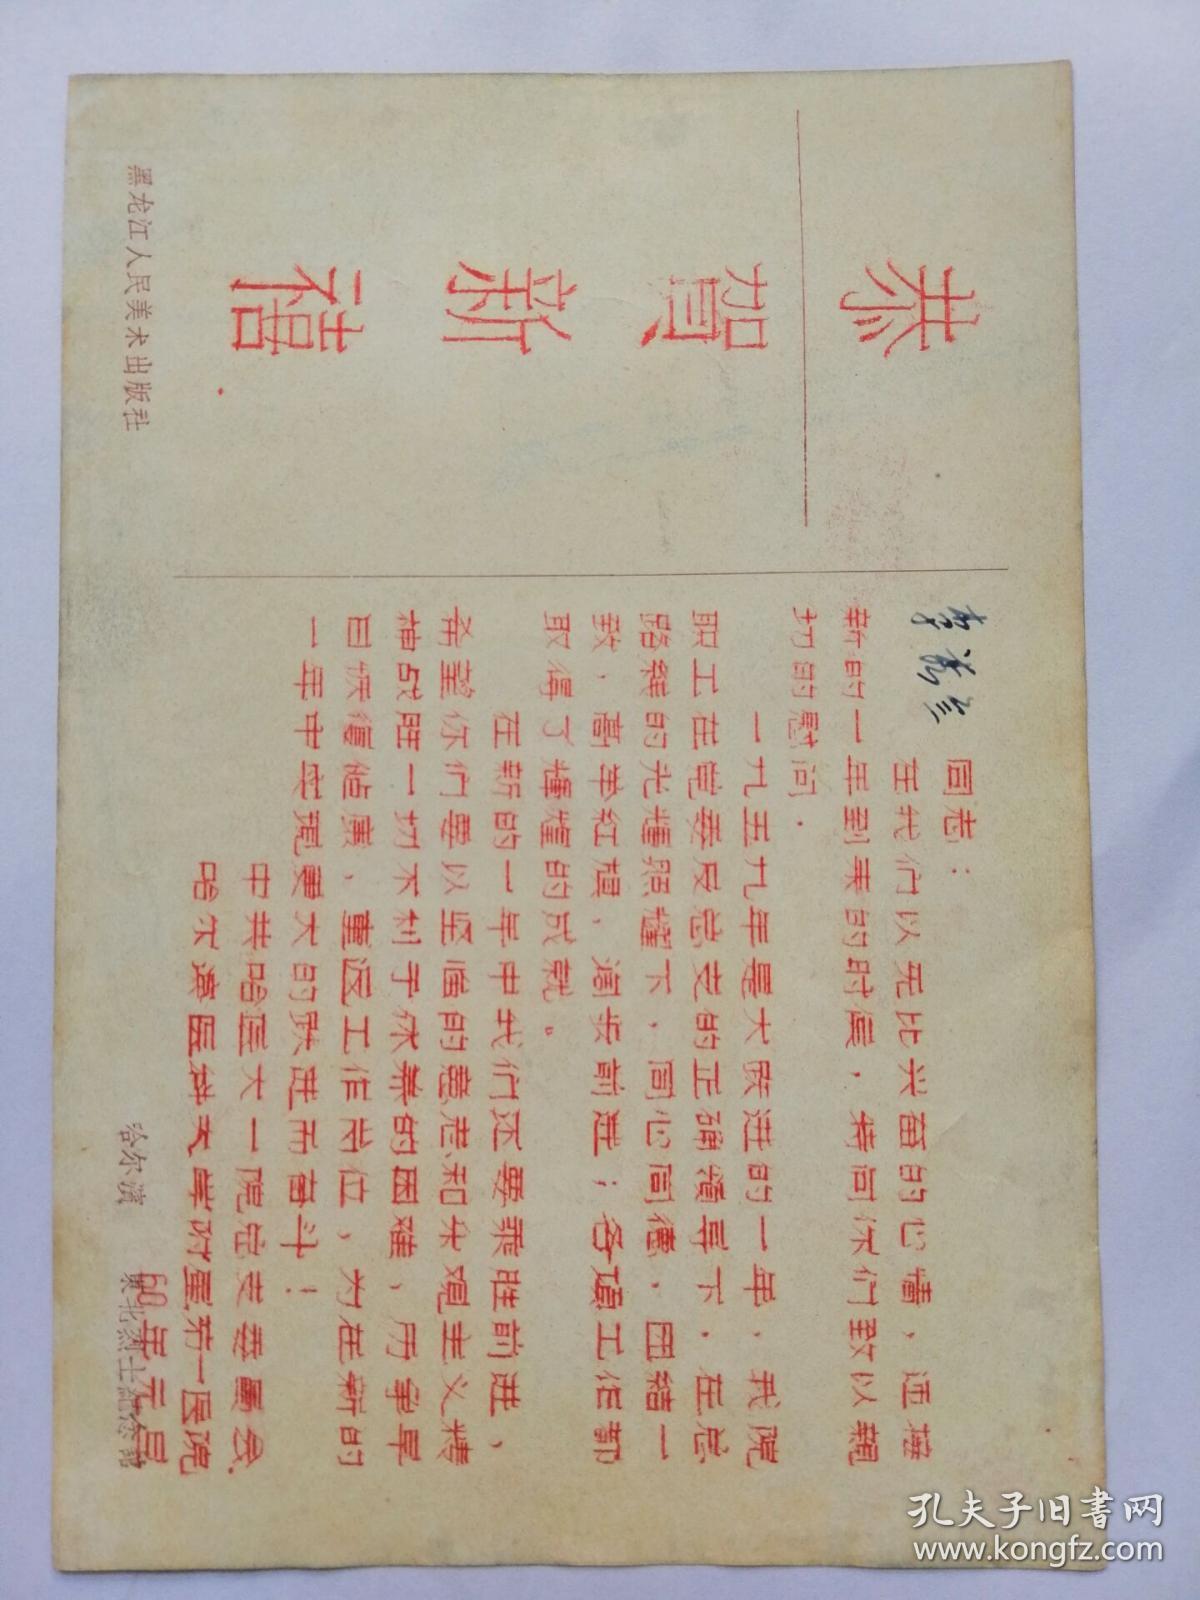 恭賀新禧
黑龙江人民美术出版社
同志：
在我们以无比兴奋的心情，迎接
新的一年到来的时候，特向你们致以親
切的慰问．
一九五九年是大跃进的一年，我院
职工在党委及总支的正确領导下，在总
路綫的光輝照耀下，同心同德，团結一
致，高举紅旗，濶步前进；各項工作都
取得了輝煌的成就。
在新的一年中我们还要乘胜前进，
希望你们要以坚强的意志和乐观主义精
神战胜一切不利于休养的困难，力争早
日恢復健康，重返工作岗位，为在新的
一年中实现更大的跃进而奋斗！
中共哈医大一院总支委員会
哈尔滨医科大学附屬第一医院
60年元旦
哈尔滨 東北烈士紀念館
孔夫子旧书网
www.kongfz.com